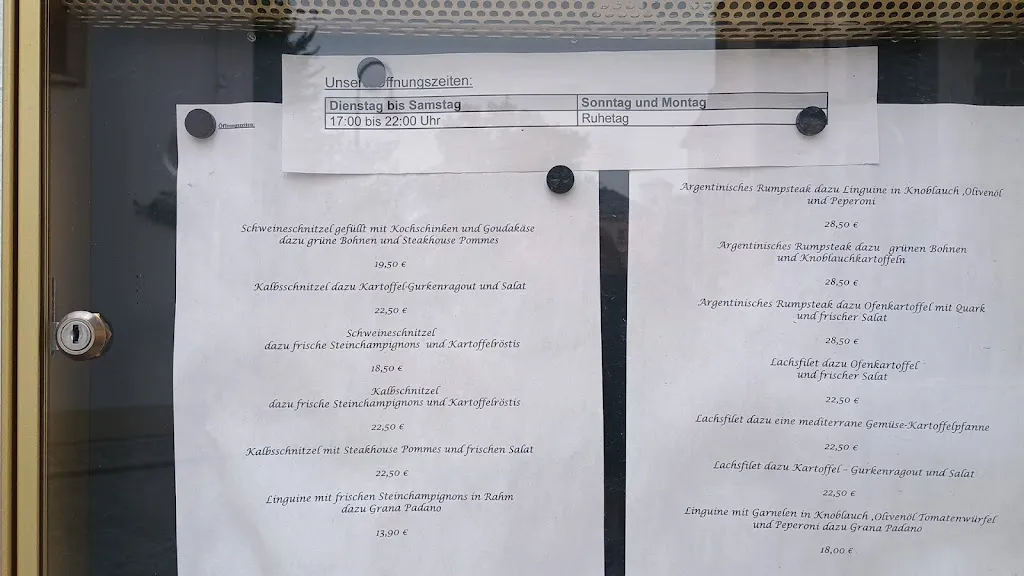 Unsere Öffnungszeiten:
Dienstag bis Samstag
Sonntag und Montag
17:00 bis 22:00 Uhr
Ruhetag
Öffnungszeiten:
Schweineschnitzel gefüllt mit Kochschinken und Goudakäse
dazu grüne Bohnen und Steakhouse Pommes
19,50 €
Kalbsschnitzel dazu Kartoffel-Gurkenragout und Salat
22,50 €
Schweineschnitzel
dazu frische Steinchampignons und Kartoffelröstis
18,50 €
Kalbschnitzel
dazu frische Steinchampignons und Kartoffelröstis
22,50 €
Kalbsschnitzel mit Steakhouse Pommes und frischen Salat
22,50 €
Linguine mit frischen Steinchampignons in Rahm
dazu Grana Padano
13,90 €
Argentinisches Rumpsteak dazu Linguine in Knoblauch ,Olivenöl
und Peperoni
28,50 €
Argentinisches Rumpsteak dazu grünen Bohnen
und Knoblauchkartoffeln
28,50 €
Argentinisches Rumpsteak dazu Ofenkartoffel mit Quark
und frischer Salat
28,50 €
Lachsfilet dazu Ofenkartoffel
und frischer Salat
22,50 €
Lachsfilet dazu eine mediterrane Gemüse-Kartoffelpfanne
22,50 €
Lachsfilet dazu Kartoffel – Gurkenragout und Salat
22,50 €
Linguine mit Garnelen in Knoblauch ,Olivenöl Tomatenwürfel
und Peperoni dazu Grana Padano
18,00 €